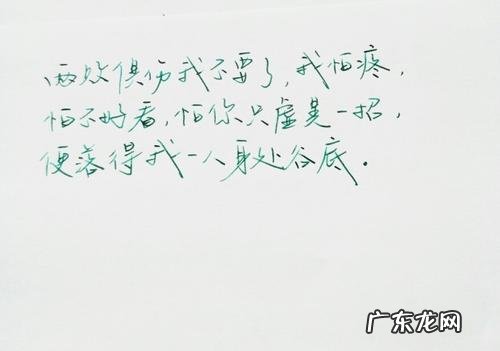 两败俱伤我不要了，我怕疼，
怕不好看，怕你只虚晃一招，
便落得我一人身处谷底．
广东龙网